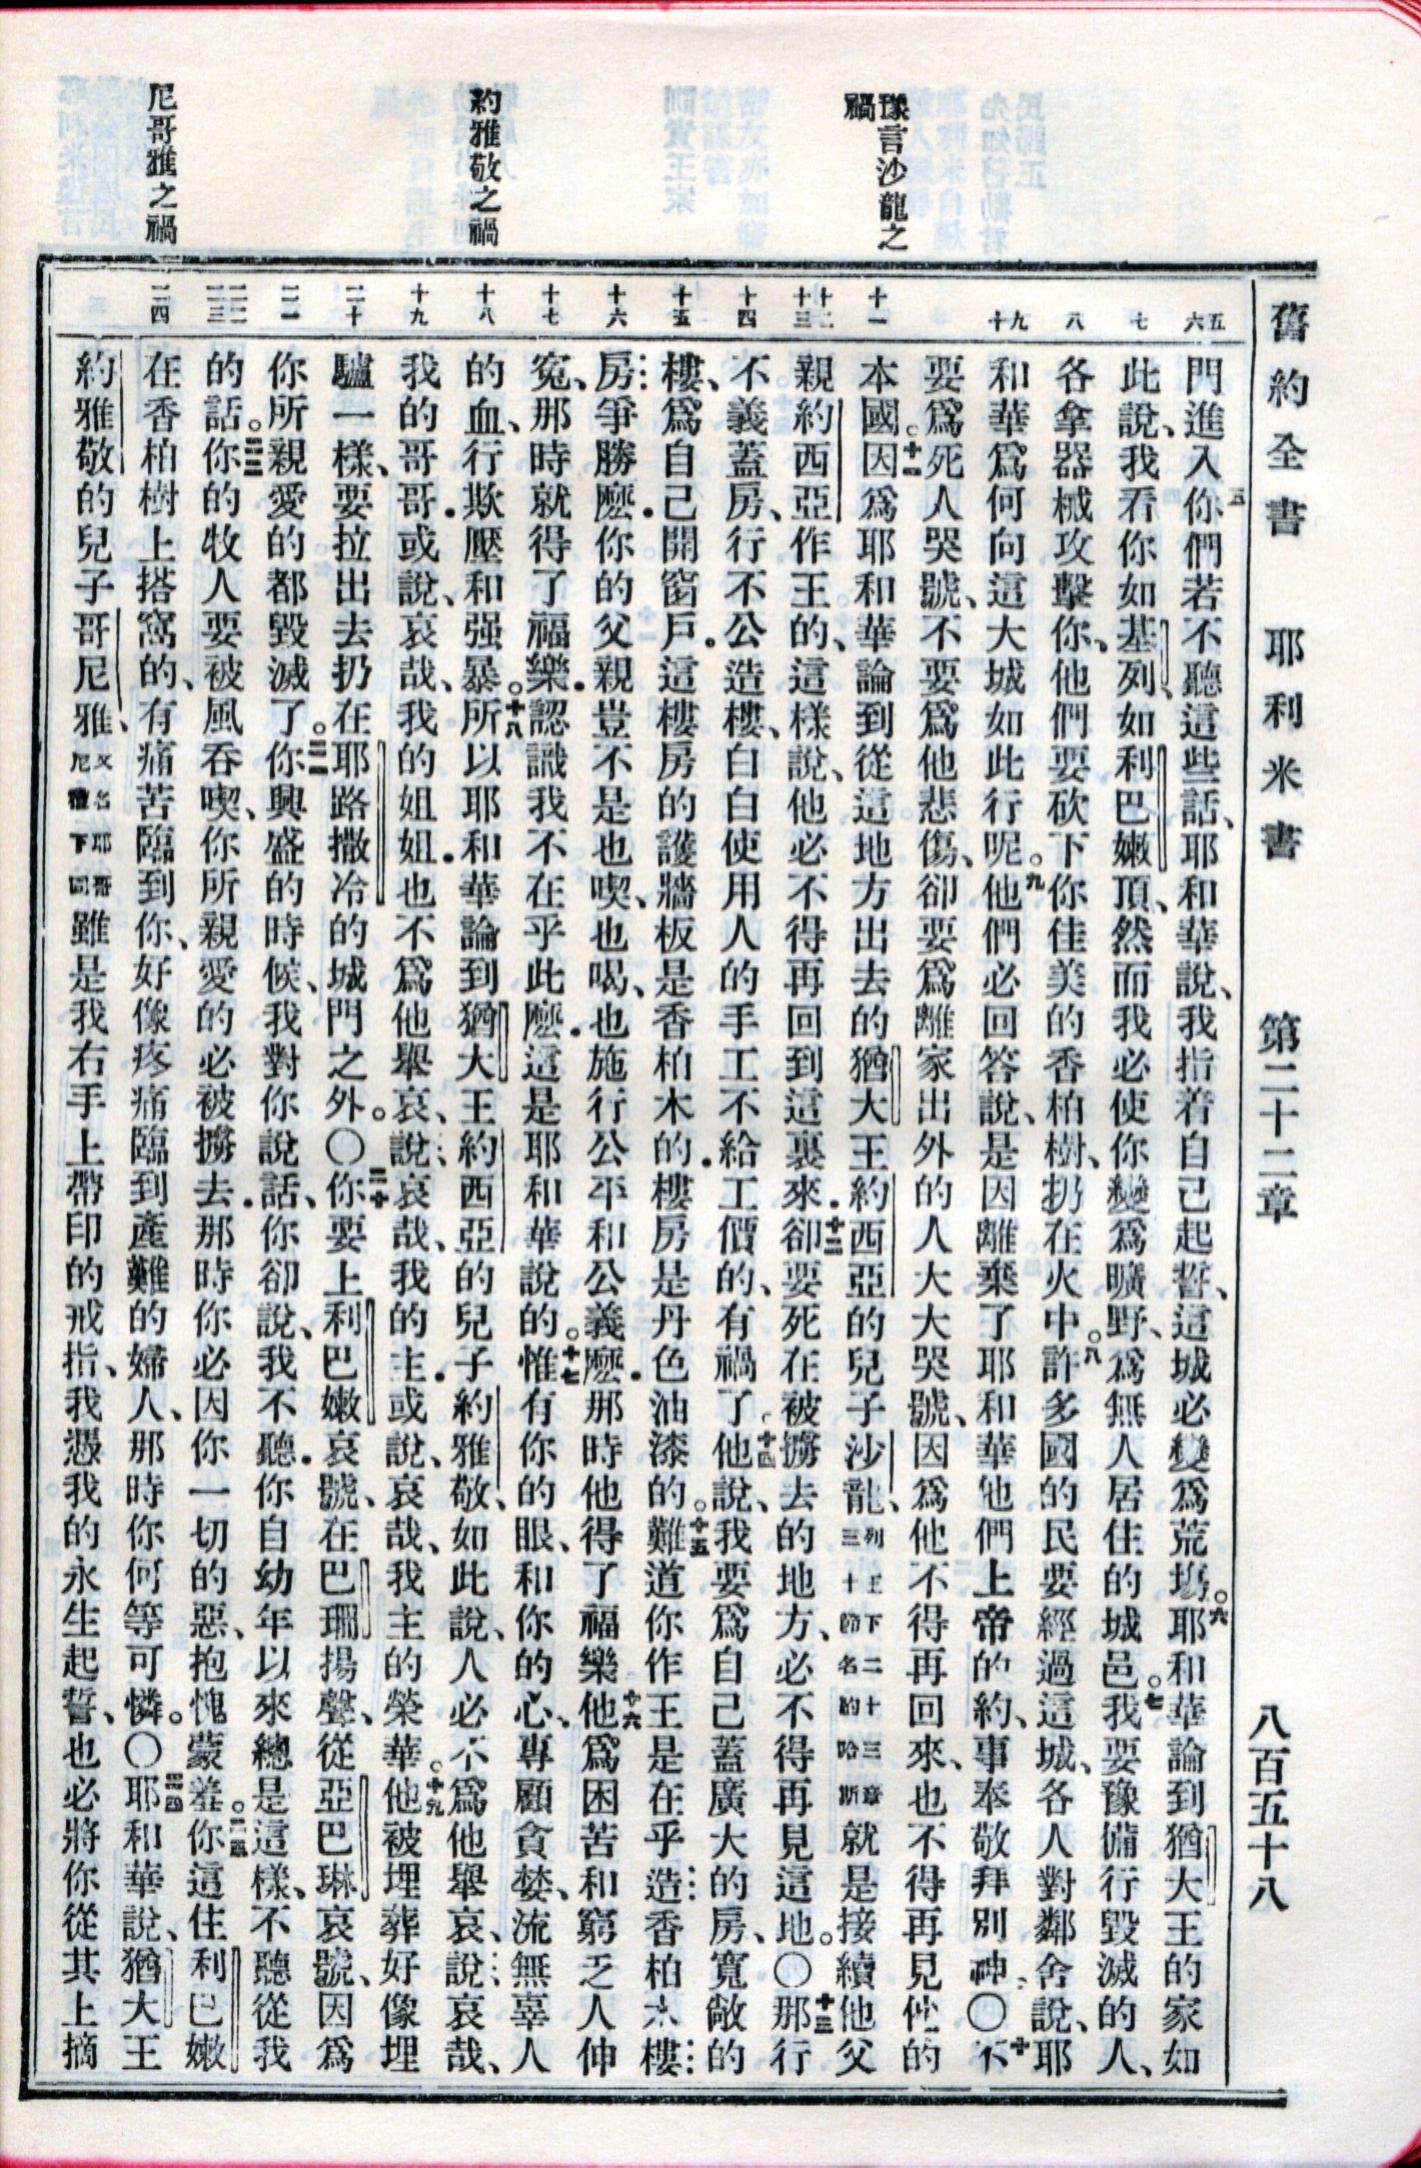 舊約全書 耶利米書 第二十二章 八百五十八
豫言沙龍之
禍
約雅敬之禍
尼哥雅之禍
五
六
七
八
九
十
十一
十二
十三
十四
十五
十六
十七
十八
十九
二十
二一
二二
二三
二四
門進入五你們若不聽這些話、耶和華說、我指着自己起誓、這城必變爲荒塲。六耶和華論到猶大王的家如
此說、我看你如基列、如利巴嫩頂、然而我必使你變爲曠野、爲無人居住的城邑。七我要豫備行毀滅的人、
各拿器械攻擊你、他們要砍下你佳美的香柏樹、扔在火中。八許多國的民要經過這城、各人對鄰舍說、耶
和華爲何向這大城如此行呢。九他們必回答說、是因離棄了耶和華他們上帝的約、事奉敬拜別神〇十不
要爲死人哭號、不要爲他悲傷、卻要爲離家出外的人大大哭號、因爲他不得再回來、也不得再見他的
本國。十一因爲耶和華論到從這地方出去的猶大王約西亞的兒子沙龍、列王下二十三章三十節名約哈斯就是接續他父
親約西亞作王的、這樣說、他必不得再回到這裏來．十二卻要死在被擄去的地方、必不得再見這地。〇十三那行
不義蓋房、行不公造樓、白白使用人的手工不給工價的、有禍了。十四他說、我要爲自己蓋廣大的房、寬敞的
樓、爲自己開窗戶．這樓房的護牆板是香柏木的．樓房是丹色油漆的。十五難道你作王是在乎造香柏木樓
房爭勝麼．你的父親豈不是也喫、也喝、也施行公平和公義麼．那時他得了福樂。十六他爲困苦和窮乏人伸
寃、那時就得了福樂．認識我不在乎此麼．這是耶和華說的。十七惟有你的眼、和你的心、專顧貪婪、流無辜人
的血、行欺壓和强暴。十八所以耶和華論到猶大王約西亞的兒子約雅敬、如此說、人必不爲他舉哀、說哀哉、
我的哥哥．或說、哀哉、我的姐姐．也不爲他舉哀、說哀哉、我的主．或說、哀哉、我主的榮華。十九他被埋葬好像埋
驢一樣、要拉出去扔在耶路撒冷的城門之外。〇二十你要上利巴嫩哀號、在巴珊揚聲、從亞巴琳哀號、因爲
你所親愛的都毀滅了。二一你興盛的時候、我對你說話、你卻說、我不聽．你自幼年以來總是這樣、不聽從我
的話。二二你的牧人要被風吞喫、你所親愛的必被擄去．那時你必因你一切的惡、抱愧蒙羞。二三你這住利巴嫩
在香柏樹上搭窩的、有痛苦臨到你、好像疼痛臨到產難的婦人、那時你何等可憐。〇二四耶和華說、猶大王
約雅敬的兒子哥尼雅、又名耶哥尼雅下同雖是我右手上帶印的戒指、我憑我的永生起誓、也必將你從其上摘